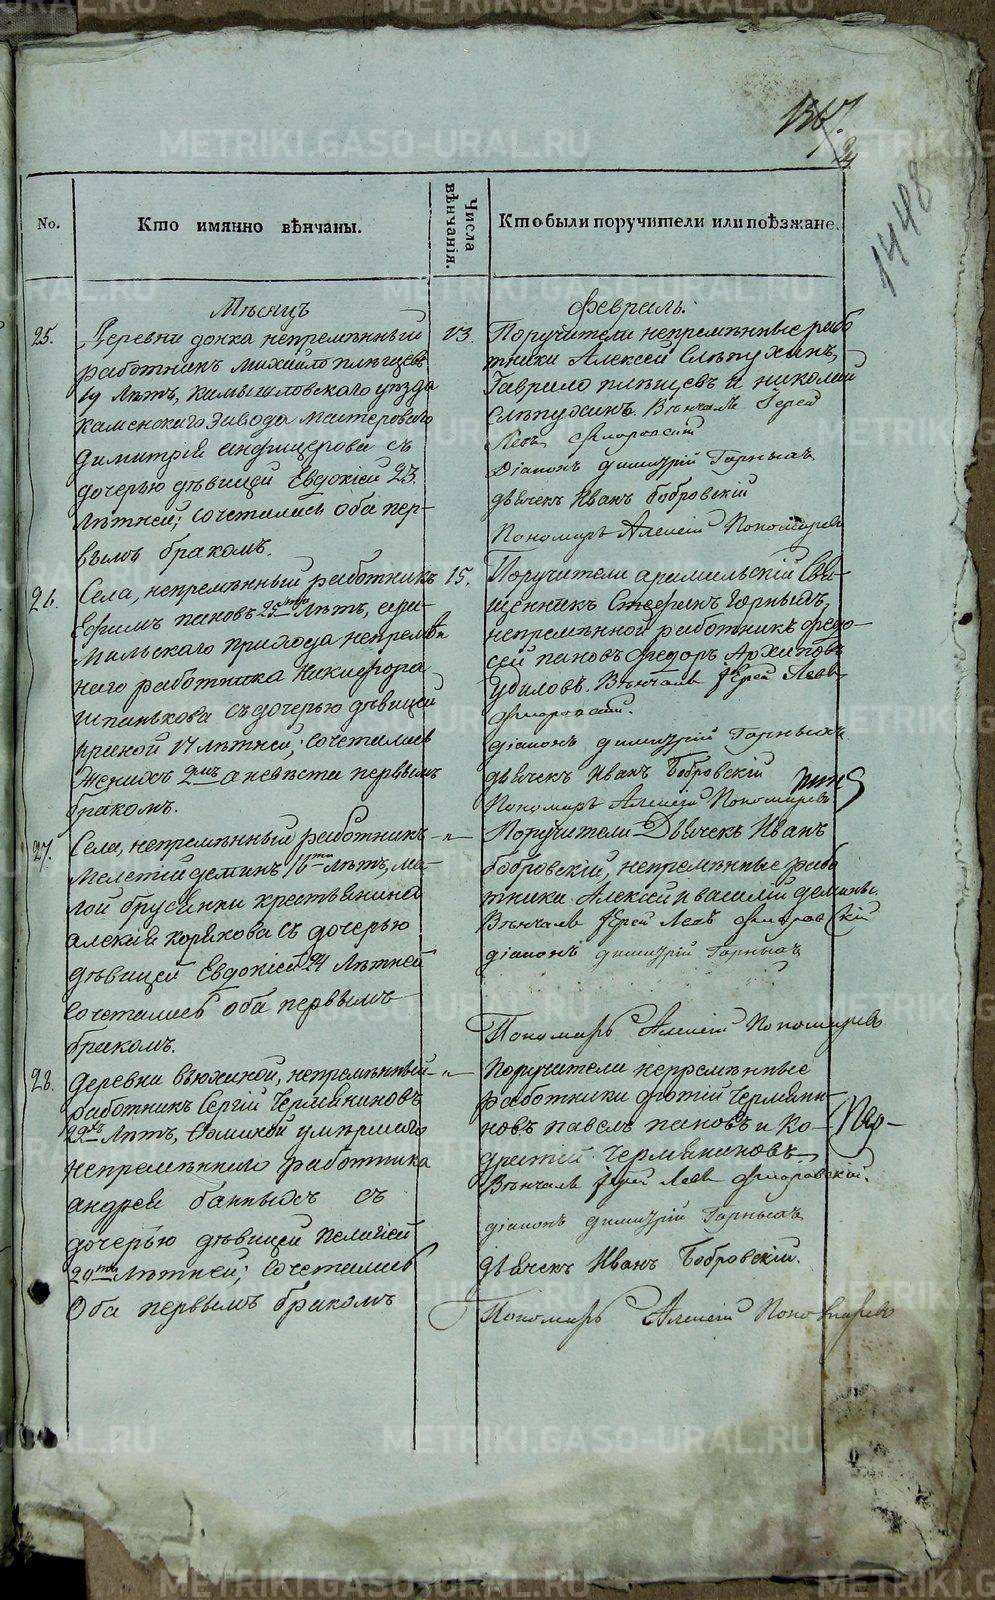 1367.
1448
No.
Кто имянно вѣнчаны.
Числа вѣнчанія.
Кто были поручители или поѣзжане.
Мѣсяцъ
Февраль.
25.
Деревни донка непремѣнный
работникъ Михайло плѣщевъ
19 Лѣтъ, камышловскаго уѣзда
каменскаго завода мастероваго
димитрія анфицерова съ
дочерью дѣвицей Евдокіей 23.
лѣтней; сочетались оба пер-
вымъ бракомъ.
13.
Поручители непремѣнные рабо
тники Алексей Слѣпухинъ,
Гаврило плѣщевъ и николай
Слѣпухинъ. Вѣнчалъ Іерей
Левъ Флоровскій
Діаконъ димитрій Горныхъ
дьячекъ Иванъ бобровскій
Пономарь Алексій Пономаревъ
26.
Села, непремѣнный работникъ
Ефимъ пановъ 25ти Лѣтъ, ара-
мильскаго прихода непремѣн
наго работника Никифора
шпанькова съ дочерью дѣвицей
ириной 17 лѣтней; сочетались
Женихъ 2мъ а невѣста первымъ
бракомъ.
15.
Поручители арамильскій Свя-
щенникъ Стефанъ Горныхъ,
непремѣнной работникъ федо-
сей пановъ федоръ Архиповъ
удиловъ. Вѣнчалъ Іерей Левъ
Флоровскій.
діаконъ димитрій Горныхъ
дьячекъ Иванъ Бобровскій
Пономарь Алексій Пономаревъ
27.
Села, непремѣнный работникъ
Мелетій деминъ 16ти лѣтъ, ма-
лой брусянки крестьянина
алексія корякова съ дочерью
дѣвицей Евдокіей 24 лѣтней
сочетались оба первымъ
бракомъ.
-"-
Поручители Дьячекъ Иванъ
бобровскій, непремѣнные рабо
тники Алексій и василій демины.
Вѣнчалъ Іерей Левъ Флоровскій
діаконъ димитрій Горныхъ
Пономарь Алексій Пономаревъ
28.
деревни вьюхиной, непремѣнный
работникъ Сергій Чермяниновъ
29ть Лѣтъ, Фоминой умѣршаго
непремѣннаго работника
андрея банныхъ съ
дочерью дѣвицей пелагіей
20ти Лѣтней; сочетались
Оба первымъ бракомъ
-"-
Поручители непремѣнные
работники фотій чермяни-
новъ павелъ пановъ и ко-
дратей чермяниновъ
Вѣнчалъ Іерей Левъ Флоровскій.
діаконъ димитрій Горныхъ
дьячекъ Иванъ Бобровскій.
Пономарь Алексій Пономаревъ
METRIKI.GASO-URAL.RU